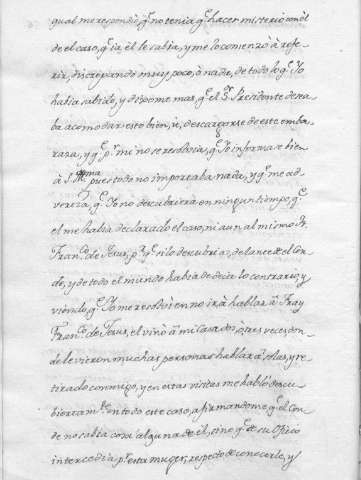 qual me respondio, q̃ no tenia q̃ hacer misterio con èl
de el caso, q̃ ia èl le sabia, y me lo comenzò à refe-
rir, discrepando muy poco, ò nada, de todo lo q̃ Io
habia sabido, y dijome mas, q̃ el Sr. Presidente desea-
ba acomodar esto bien, ù, descargarse de este emba-
razo, y q̃ pr. mi no se resolvia, q̃ Io informase bien
à S. Illma. pues todo no importaba nada, y q̃ me ad-
q̃ Io no descubriera en ningun tiempo, q̃
el me habia declarado el caso, ni aun al mismo Fr.
Franco. de Jesus, pr. q̃ si lo descubria, delante de el Con-
de, y de todo el mundo habia de decir lo contrario, y
viendo, q̃ Io me resolvi en no ir à hablar à Fray
Franco. de Jesus, el vino à mi Casa dos, ò tres veces, don-
de le vieron muchas personas hablar à solas, y re-
tirado conmigo, y en estas visitas me hablò descu-
biertamte. en todo este caso, afirmandome q̃ el Con-
de no sabia cosa alguna de èl, sino q̃ de su Oficio
intercedia pr. esta muger, respecto de conocerle, y